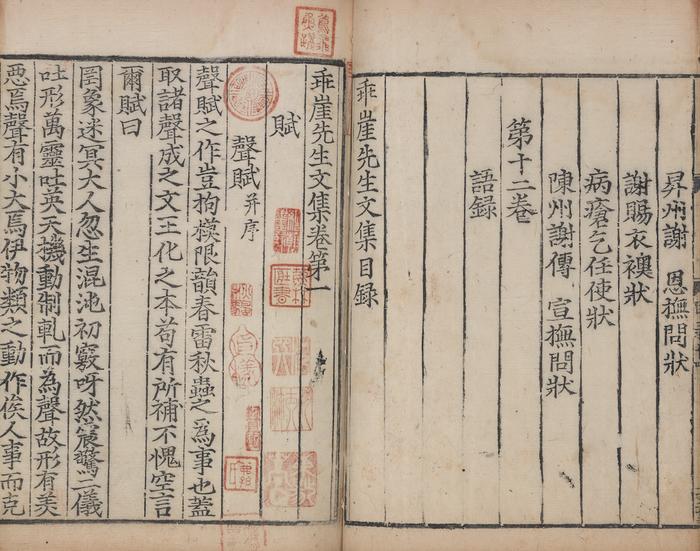 昇州謝 恩撫問狀
謝賜衣襖狀
病瘡乞任使狀
陳州謝傳 宣撫問狀
第十二卷
語録
乖崖先生文集目録
乖崖先生文集卷第一
賦
聲賦并序
聲賦之作豈拘模限韻春雷秋蟲之為事也蓋
取諸聲成之文王化之本苟有所補不愧空言
爾賦曰
罔象迷冥大人忽生混沌初竅呀然震驚二儀
吐形萬靈吐英天機動制軋而為聲故形有美
惡焉聲有小大焉伊物類之動作俟人事而克